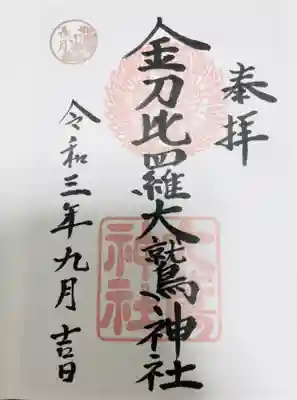 奉拝
金刀比羅大鷲神社
令和三年九月吉日